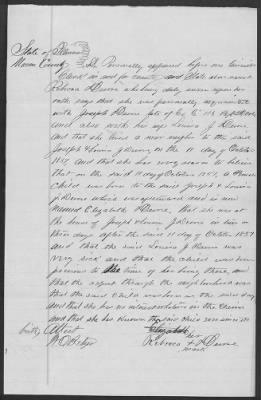 State of Illinois
Macon County } SS. Personally appeared before me
Clerk in and for county and State aforesaid
Rebecca Deene who being duly sworn upon her
oath says that she was personally acquainted
with Joseph Deene late of Co. E 115
and also with his wife Louisa J Deene
and that she lived a near neighbor to the said
Joseph & Louisa J Deene, on the 11 day of October
1857 and that she has every reason to believe
that on the said 11 day of October 1857, a
Child was born to the said Joseph & Louisa
J Deene which was and is now
named Elizabeth Deene, that she was at
the house of Joseph & Louisa J Deene in two or
three days after the said 11 day of October 1857
and that the said Louisa J Deene was
very sick and that the child was born
previous to the time of her being there, and
that the report through the neighborhood was
that the said child was born on the said day
and that she has no interest in the claim
and that she has known the said child ever since its
birth. Attest
her
Rebecca X Deene
mark